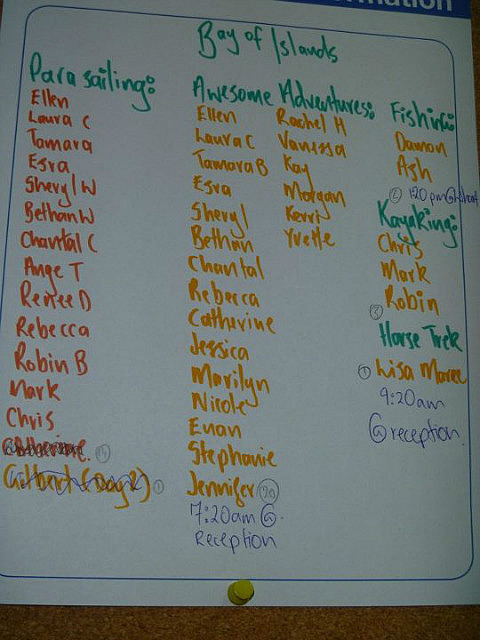 Bay of Islands
Parasailing:
Ellen
Laura C
Tamara
Esra
Sheryl W
Bethan W
Chantal C
Ange T
Renee D
Rebecca
Robin B
Mark
Chris
Catherine. 14
Gilbert (Day 2) 1
Awesome Adventures:
Ellen
Laura C
Tamara B
Esra
Sheryl
Bethan
Chantal
Rebecca
Catherine
Jessica
Marilyn
Nicole
Evan
Stephanie
Jennifer
7:20am @
reception
Rachel H
Vanessa
Kay
Morgan
Kerri
Yvette
Fishing:
Damon
Ash
2 1:20pm @
Kayaking:
Chris
Mark
Robin
3
Horse Trek
1 Lisa Maree
9:20am
@ reception.